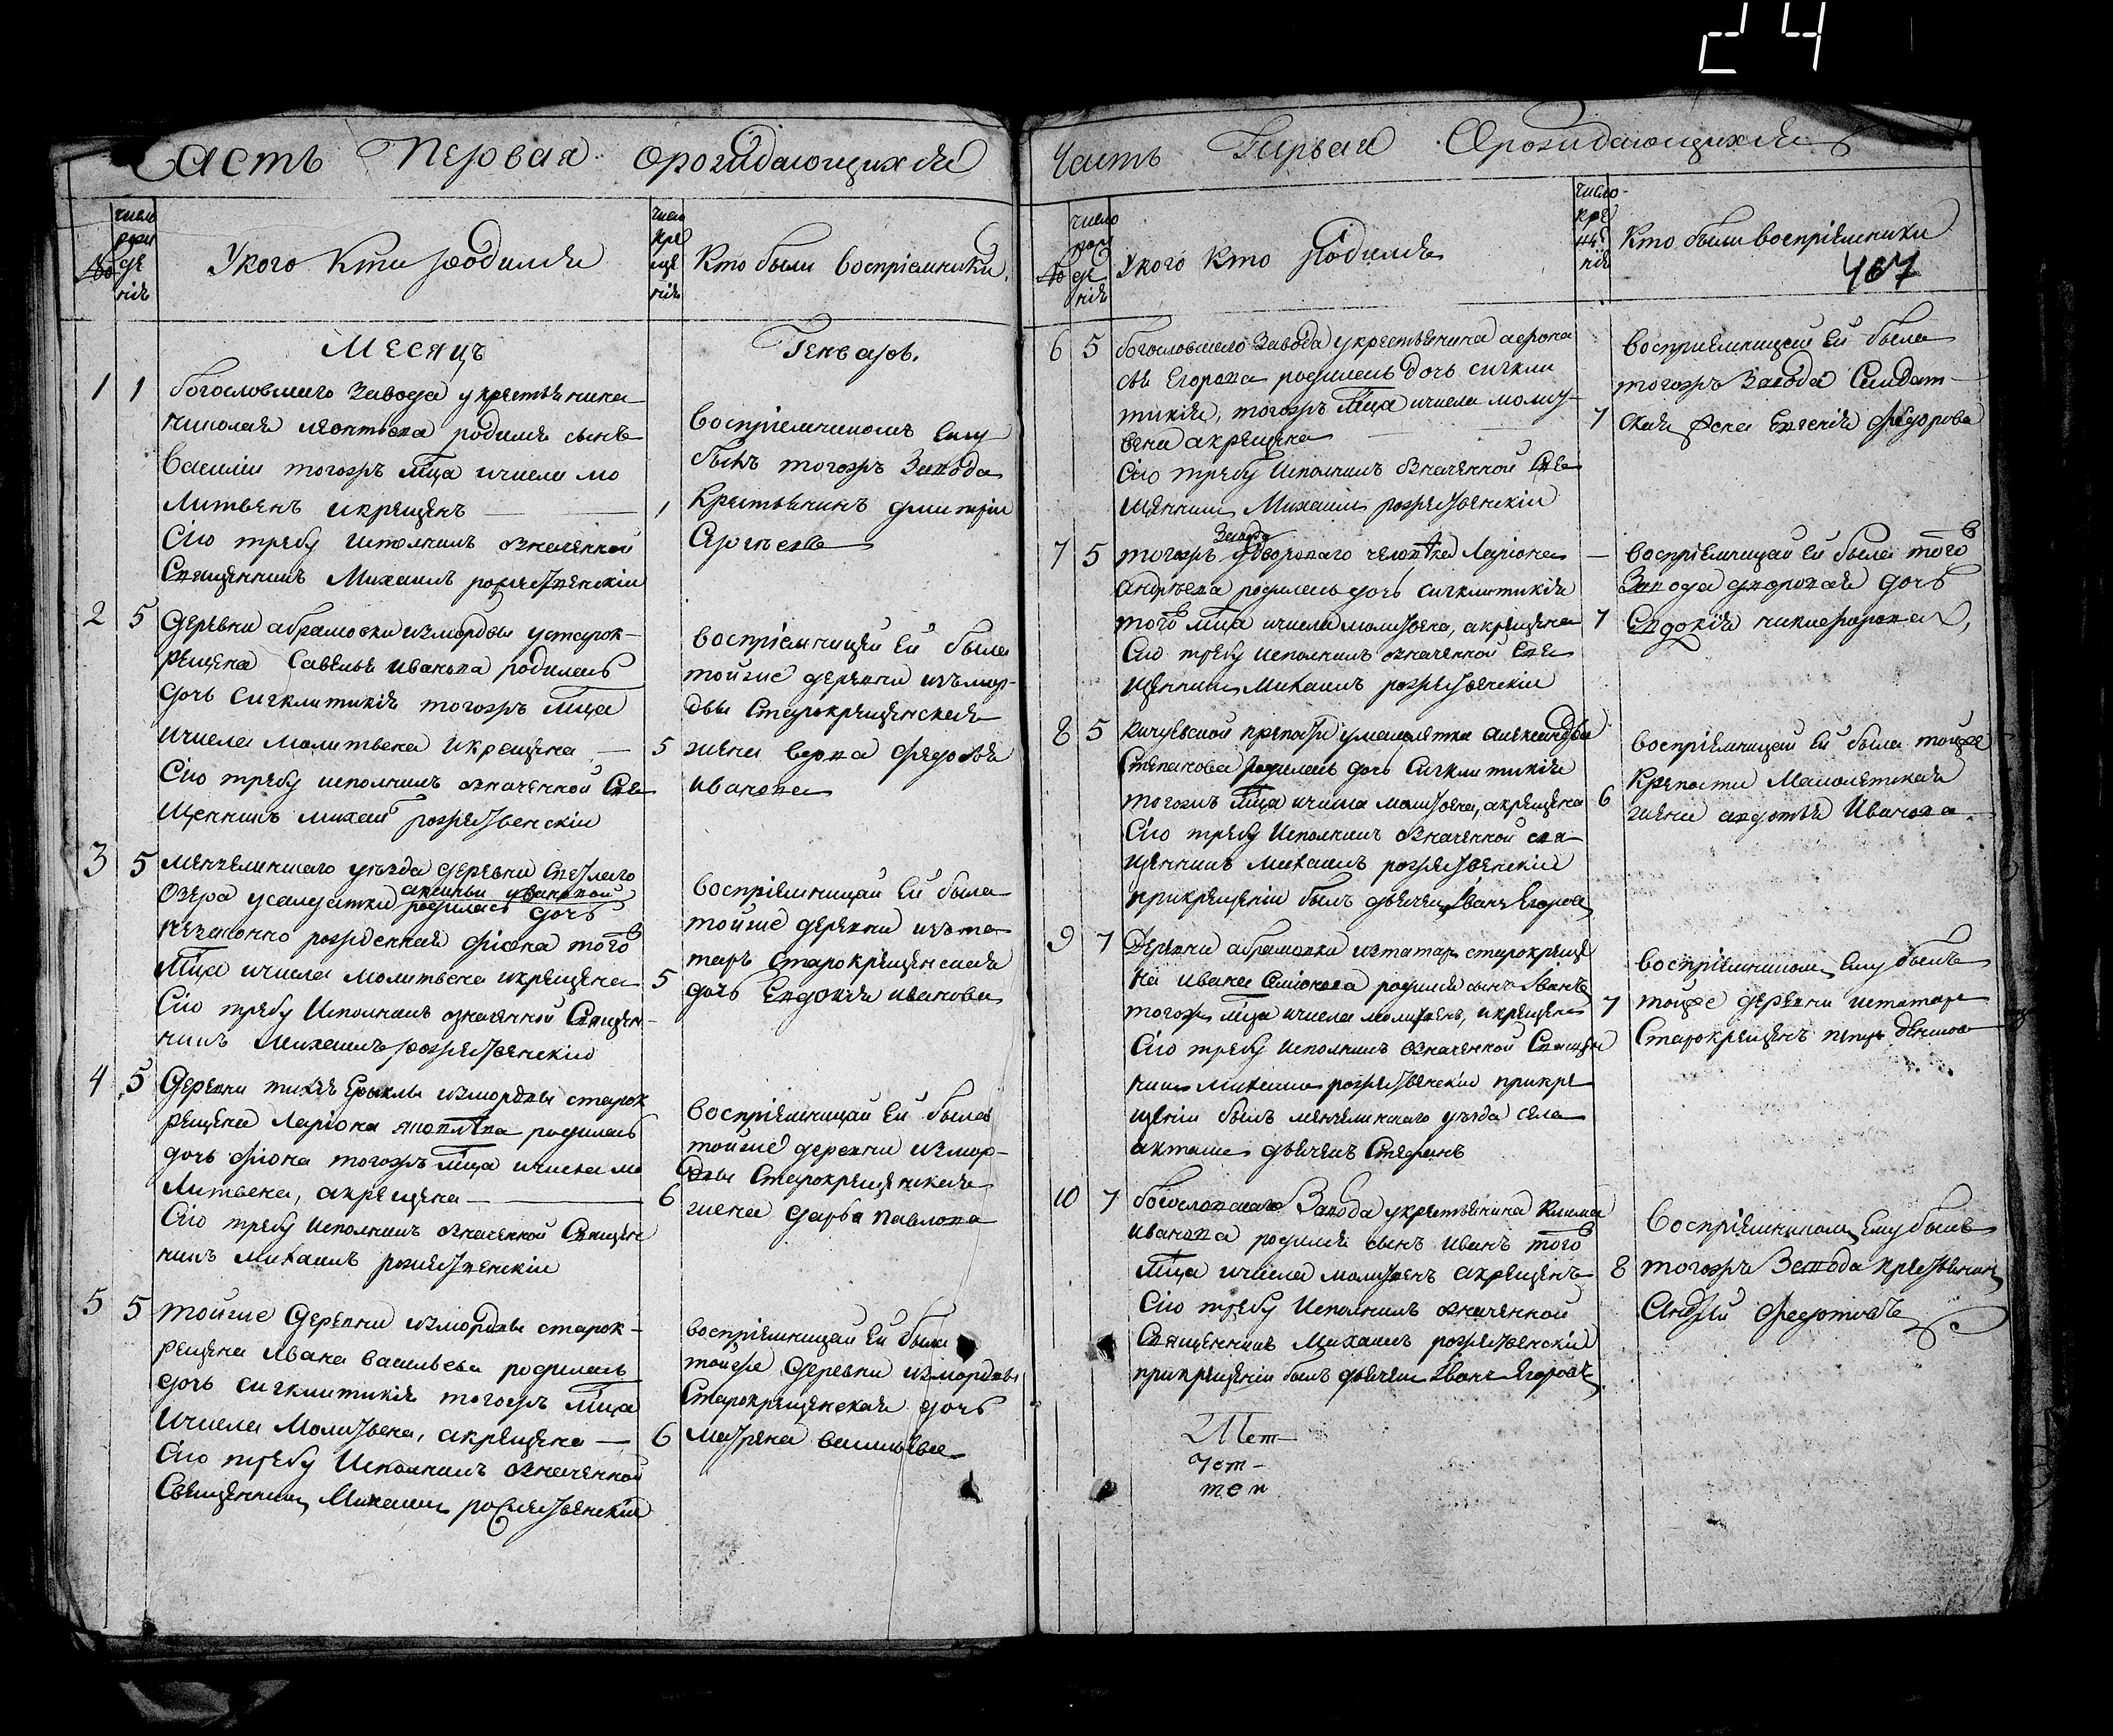 24
Часть Первая ораждающихся
№
число
рож
де
нія
У кого кто родился
число
кре
ще
нія
Кто были воспріемники
Месяцъ
Генваръ.
1 1 богословскаго Завода у крестьянина
николая леонтьева родился сынъ
василіи тогожъ мца ичисла мо
литвенъ икрещенъ — 1
Сію требу исполнилъ означенной
Священникъ Михаилъ рождественскій
воспріемникомъ ему
былъ тогожъ Завода
Крестьянинъ дмитріи
Сергѣевъ
2 5 деревни абрамовки измордвы устарок-
рещена Савелья иванова родилась
дочь сигклитикія тогожъ мца
ичисла молитвена икрещена — 5
Сію требу исполнилъ означенной Свя
щенникъ михаилъ рождественскіи
воспріемницей ей была
тойже деревни изъмор-
двы Старокрещенская
жена федосья
иванова
3 5 мензелинскаго уѣзда деревни Светлаго
Озера усалдатки аксиньи ивановой
родилась дочь
незаконно рожденная фіона того
мца ичисла молитвена икрещена 5
Сію требу Исполнилъ означенной Священ-
никъ Михаилъ рождественскіи
воспріемницай ей была
тойже деревни изъ та
таръ Старокрещенская
дочь Евдокія иванова
4 5 Деревни измордвы старок
рещена Ларіона родилась
дочь фіона тогожъ мца ичисла мо
литвена, акрещена — 6
Сію требу исполнилъ означенной Священ
никъ михаилъ рождественскіи
воспріемницай ей была
тойже деревни измор-
двы Старокрещенская
жена дарья павлова
5 5 тойже Деревни измордвы старок-
рещена ивана васильева родилась
дочь сигклитикія тогожъ мца
ичисла Молитвена, акрещена — 6
Сію требу Исполнилъ означенной
Священникъ Михаилъ рождественскіи
воспріемницай ей была
тойже деревни измордвы
Старокрещенская дочь
матрена васильева
Часть Первая Ораждающихся
№
число
рож
де
нія
У кого кто родился
число
кре
ще
нія
Кто были воспріемники
467
6 5 богословскаго Завода укрестьянина
Егорова родилась дочь сигкли
тикія, тогожъ мца ичисла молит-
вена акрещена — 7
Сію требу Исполнилъ означенной Свя
щенникъ Михаилъ рождественскіи
восприемницей ей была
тогожъ Завода Салдат-
ская жена Евгенія федорова
7 5 тогожъ Завода дворового человѣка Ларіона
андрѣева родилась дочь сигклитикія
того мца ичисла молитвена, акрещена 7
Сію требу исполнилъ означенной Свя
щенникъ Михаилъ рождественскіи
— воспріемницай ей была того
Завода дворовая дочь
Евдокія никифорова,
8 5 Кичуевской крепости умалолетка александра
Степанова родилась дочь Сигклитикія
тогожъ мца ичисла молитвена, акрещена 6
Сію требу Исполнилъ означенной свя
щенникъ михаилъ рождественскіи
прикрещеніи былъ дьячекъ Иванъ Егоровъ
воспріемницай ей была тойже
Крепости Малолетская
жена авдотья Иванова.
9 7 Деревни абрамовки изтатаръ старокреще
на ивана Семіонова родился сынъ Иванъ
тогожъ мца ичисла молитвенъ, икрещенъ 7
Сію требу исполнилъ означенной Священ
никъ михаилъ рождественскіи прикре
щеніи былъ мензелинскаго уѣзда села
акташа дьячекъ Стефанъ
воспріемникомъ ему былъ
тойже деревни изтатаръ
Старокрещенъ петръ денисовъ
10 7 богословскаго Завода укрестьянина Клима
иванова родился сынъ иванъ того
мца ичисла молитвенъ акрещенъ 8
Сію требу исполнилъ означенной
Священникъ Михаилъ рождественскіи
прикрещеніи былъ дьячекъ Иванъ Егоровъ
воспріемникомъ ему былъ
тогожъ Завода крестьянинъ
Андрѣй Федотовъ